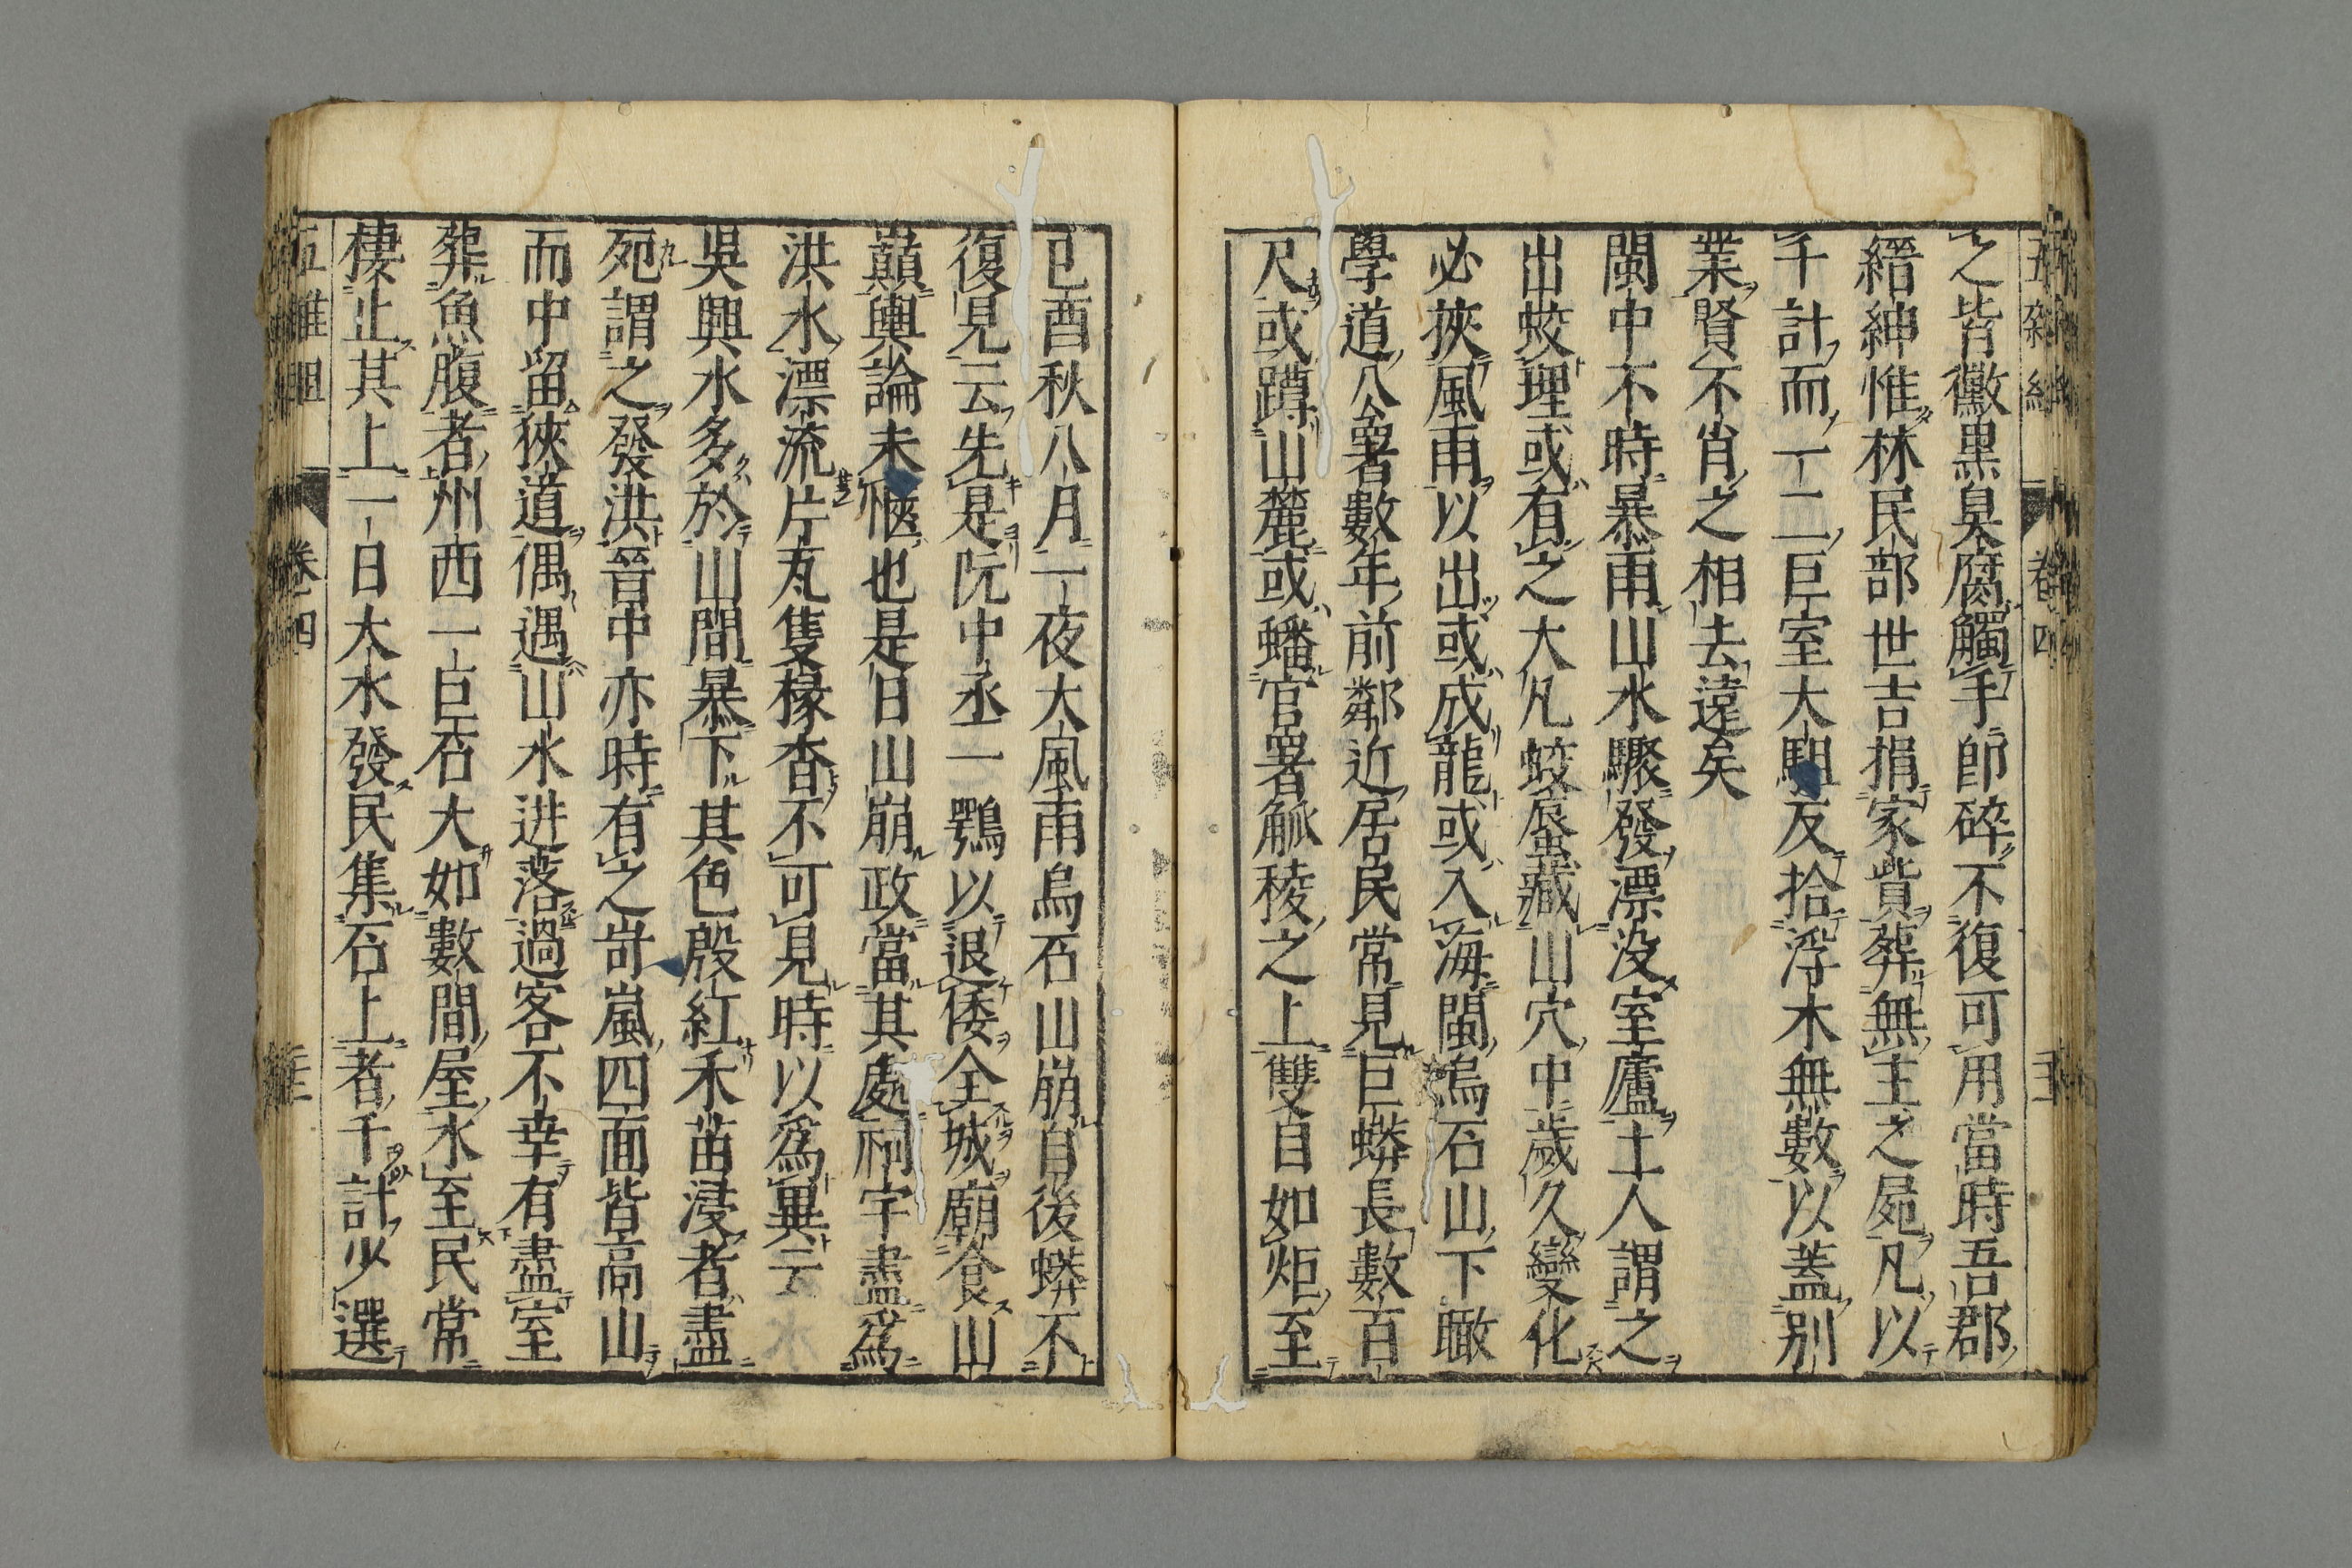 之皆黴黒臭腐觸手即碎不復可用當時吾郡
縉紳惟林民部世吉捐家貲葬無主之屍凡以
千計而一二巨室大駔反拾浮木無數以蓋別
業賢不肖之相去遠矣
閩中不時暴雨山水驟發漂没室廬土人謂之
出蛟理或有之大凡蛟蜃藏山穴中歲久變化
必挾風雨以出或成龍或入海閩烏石山下瞰
學道公署數年前鄰近居民常見巨蟒長數百
尺或蹲山麓或蟠官署觚稜之上雙目如炬至
己酉秋八月一夜大風雨烏石山崩自後蟒不
復見云先是阮中丞一鶚以退倭全城廟食山
巔輿論未愜也是日山崩政當其處祠宇盡爲
洪水漂流片瓦隻椽杳不可見時以爲異云
吳興水多於山間暴下其色殷紅禾苗浸者盡
死謂之發洪晉中亦時有之岢嵐四面皆高山
而中留狹道偶遇山水迸落過客不幸有盡室
葬魚腹者州西一巨石大如數間屋水至民常
棲止其上一日大水發民集石上者千計少選
五雜組
卷四